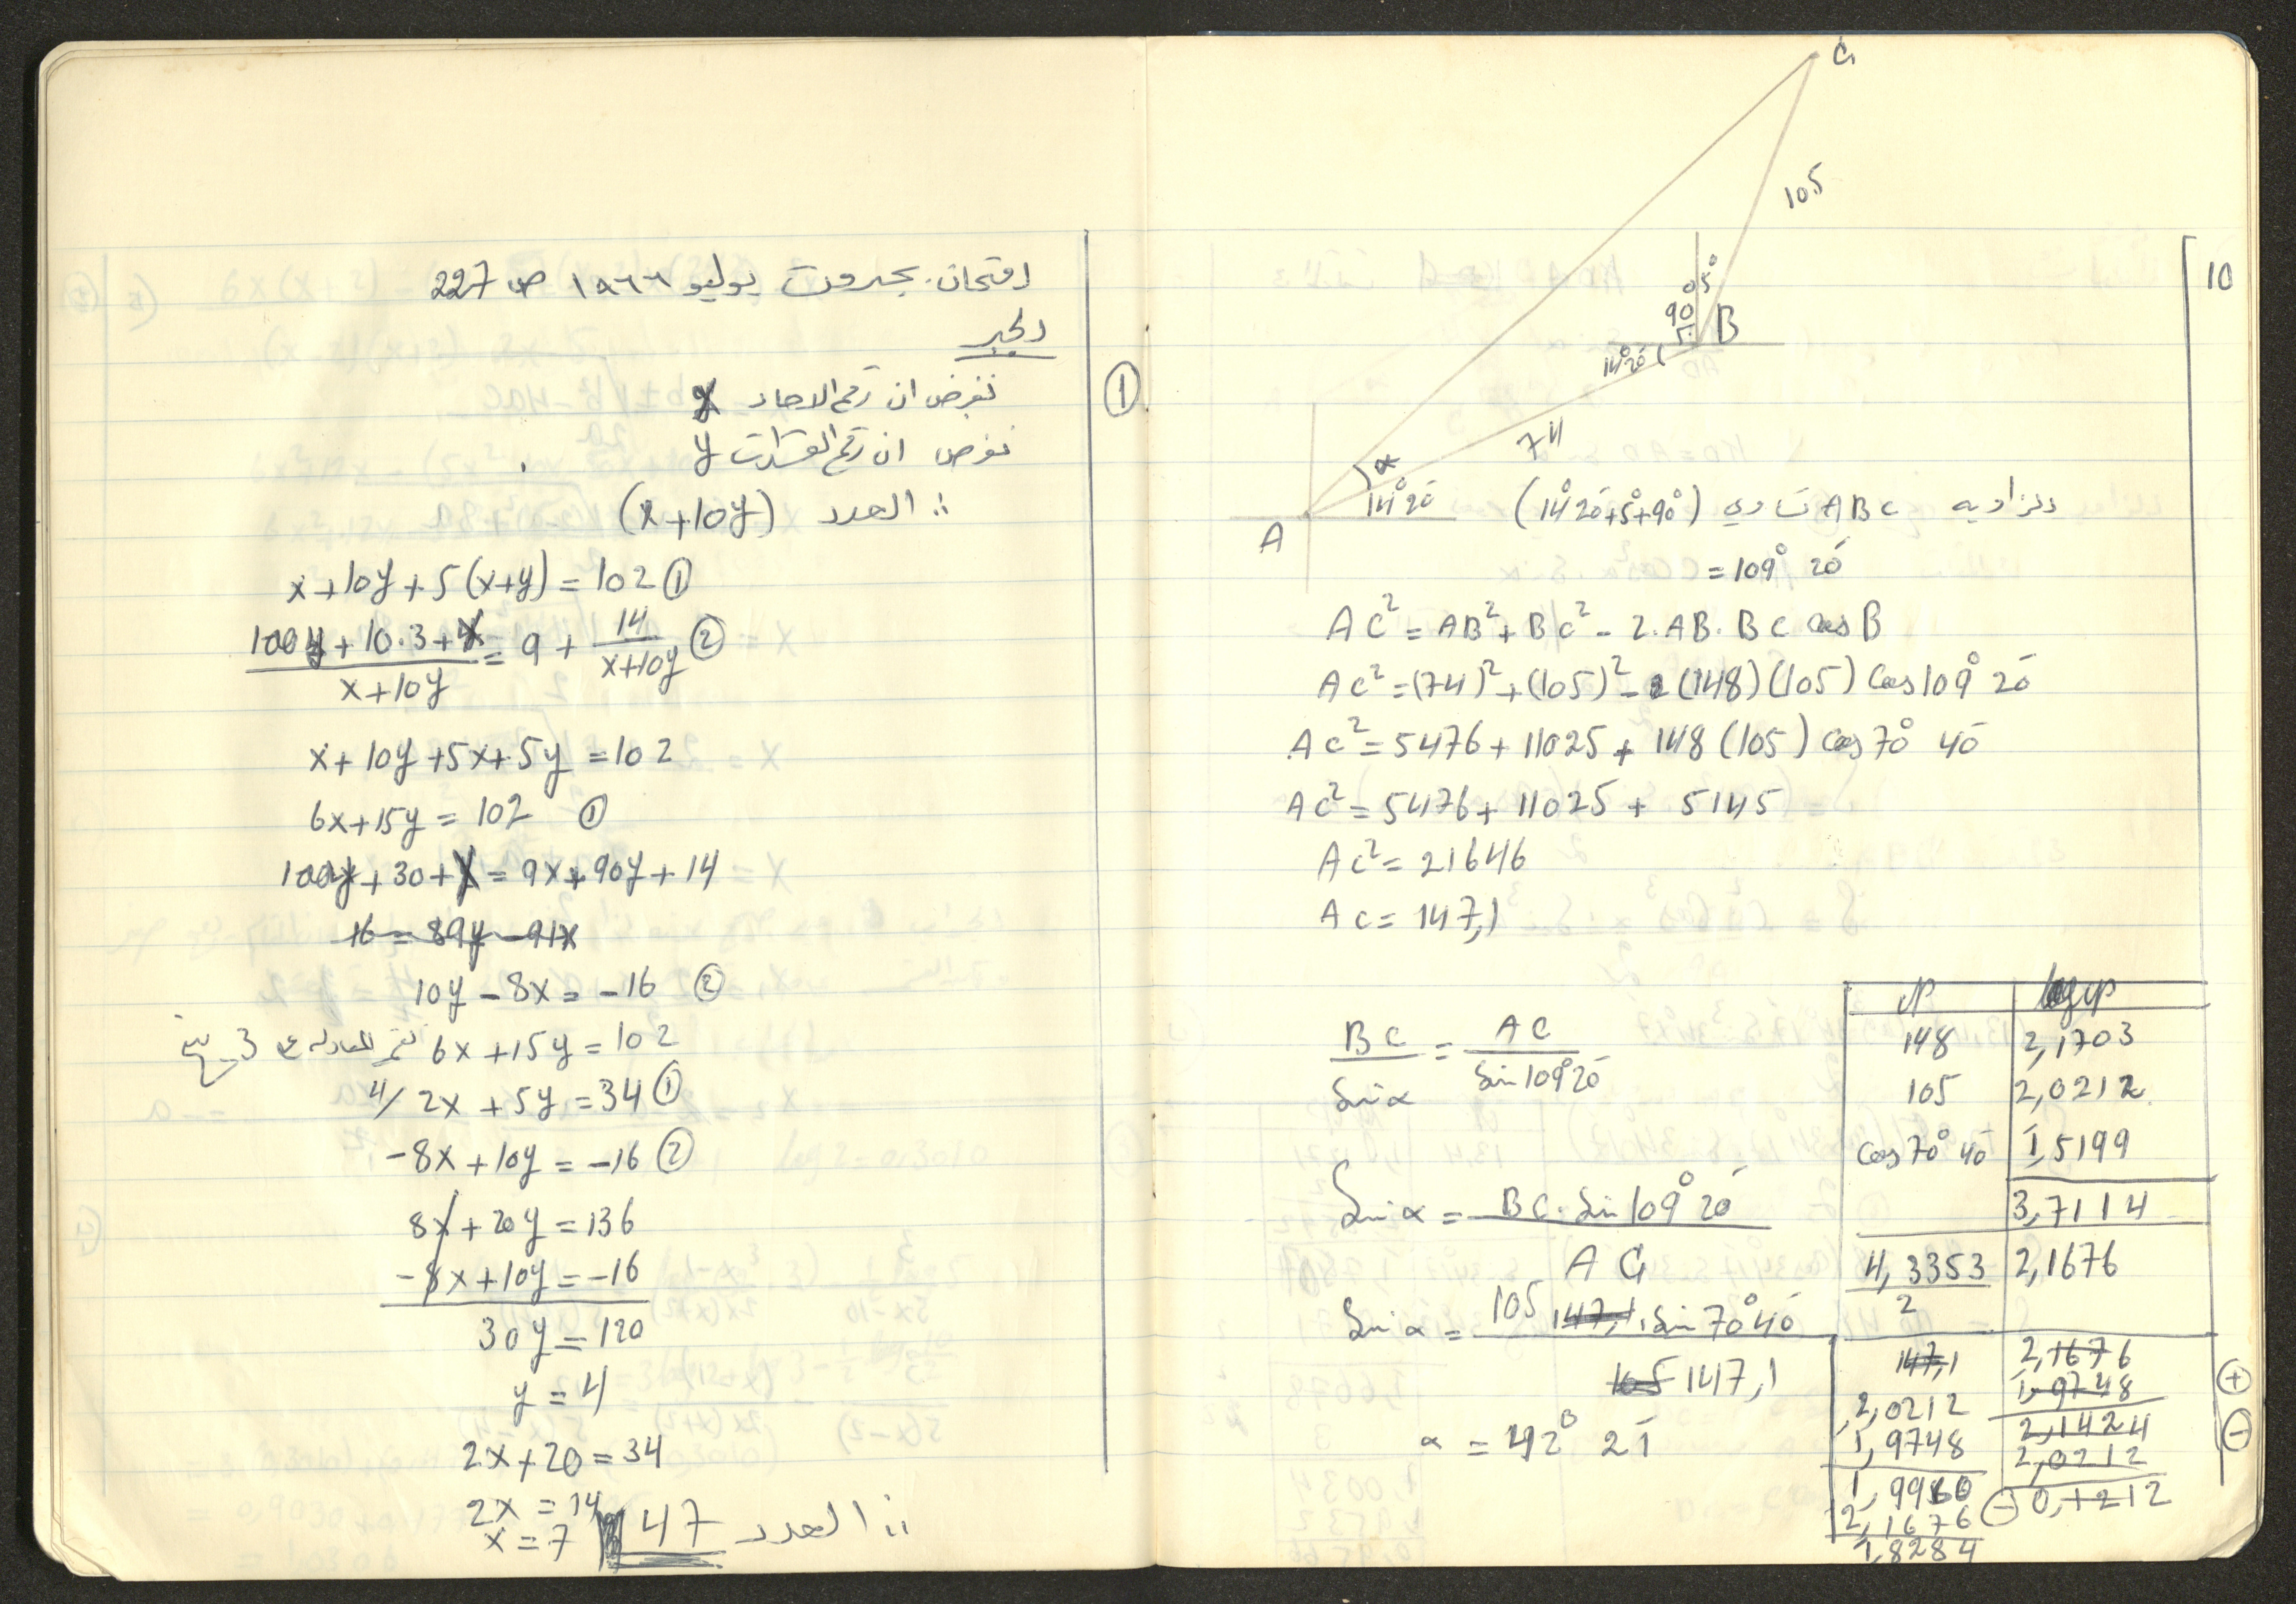 امتحان بجروت يوليو ١٩٦٦ ص 227
الجبر
①
نفرض ان رقم الاحاد x
نفرض ان رقم العشرات y
∴ العدد (x+10y)
x+10y+5(x+y)=102 ①
100y+10.3+x / x+10y = 9 + 14 / x+10y ②
x+10y+5x+5y=102
6x+15y=102 ①
100y+30+x=9x+90y+14
16=89y-91x
10y-8x=-16 ②
6x+15y=102 3
4/ 2x+5y=34 ①
-8x+10y=-16 ②
8x+20y=136
-8x+10y=-16
30y=120
y=4
2x+20=34
2x=14
x=7
∴ العدد 47
10
C
105
5°
90
B
14°20'
74
α
14°20'
A
الزاويه ABC تساوي (14°20'+5°+90°)
=109° 20'
AC²=AB²+BC²-2.AB.BC cos B
AC²=(74)²+(105)²-2(148)(105) Cos 109° 20'
AC²=5476+11025+148(105) cos 70° 40'
AC²=5476+11025+5145
AC²=21646
AC=147,1
BC / Sin α = AC / Sin 109°20'
Sin α = BC. Sin 109° 20' / AC
Sin α = 105 147,1 . Sin 70°40' / 105 147,1
α = 42° 21'
N log N
148 2,1703
105 2,0212
Cos 70° 40' 1,5199
3,7114
4,3353 / 2 2,1676
147,1 2,1676
1,9748 +
2,1424
2,0212 -
0,1212
2,0212
1,9748
1,9960
2,1676 -
1,8284